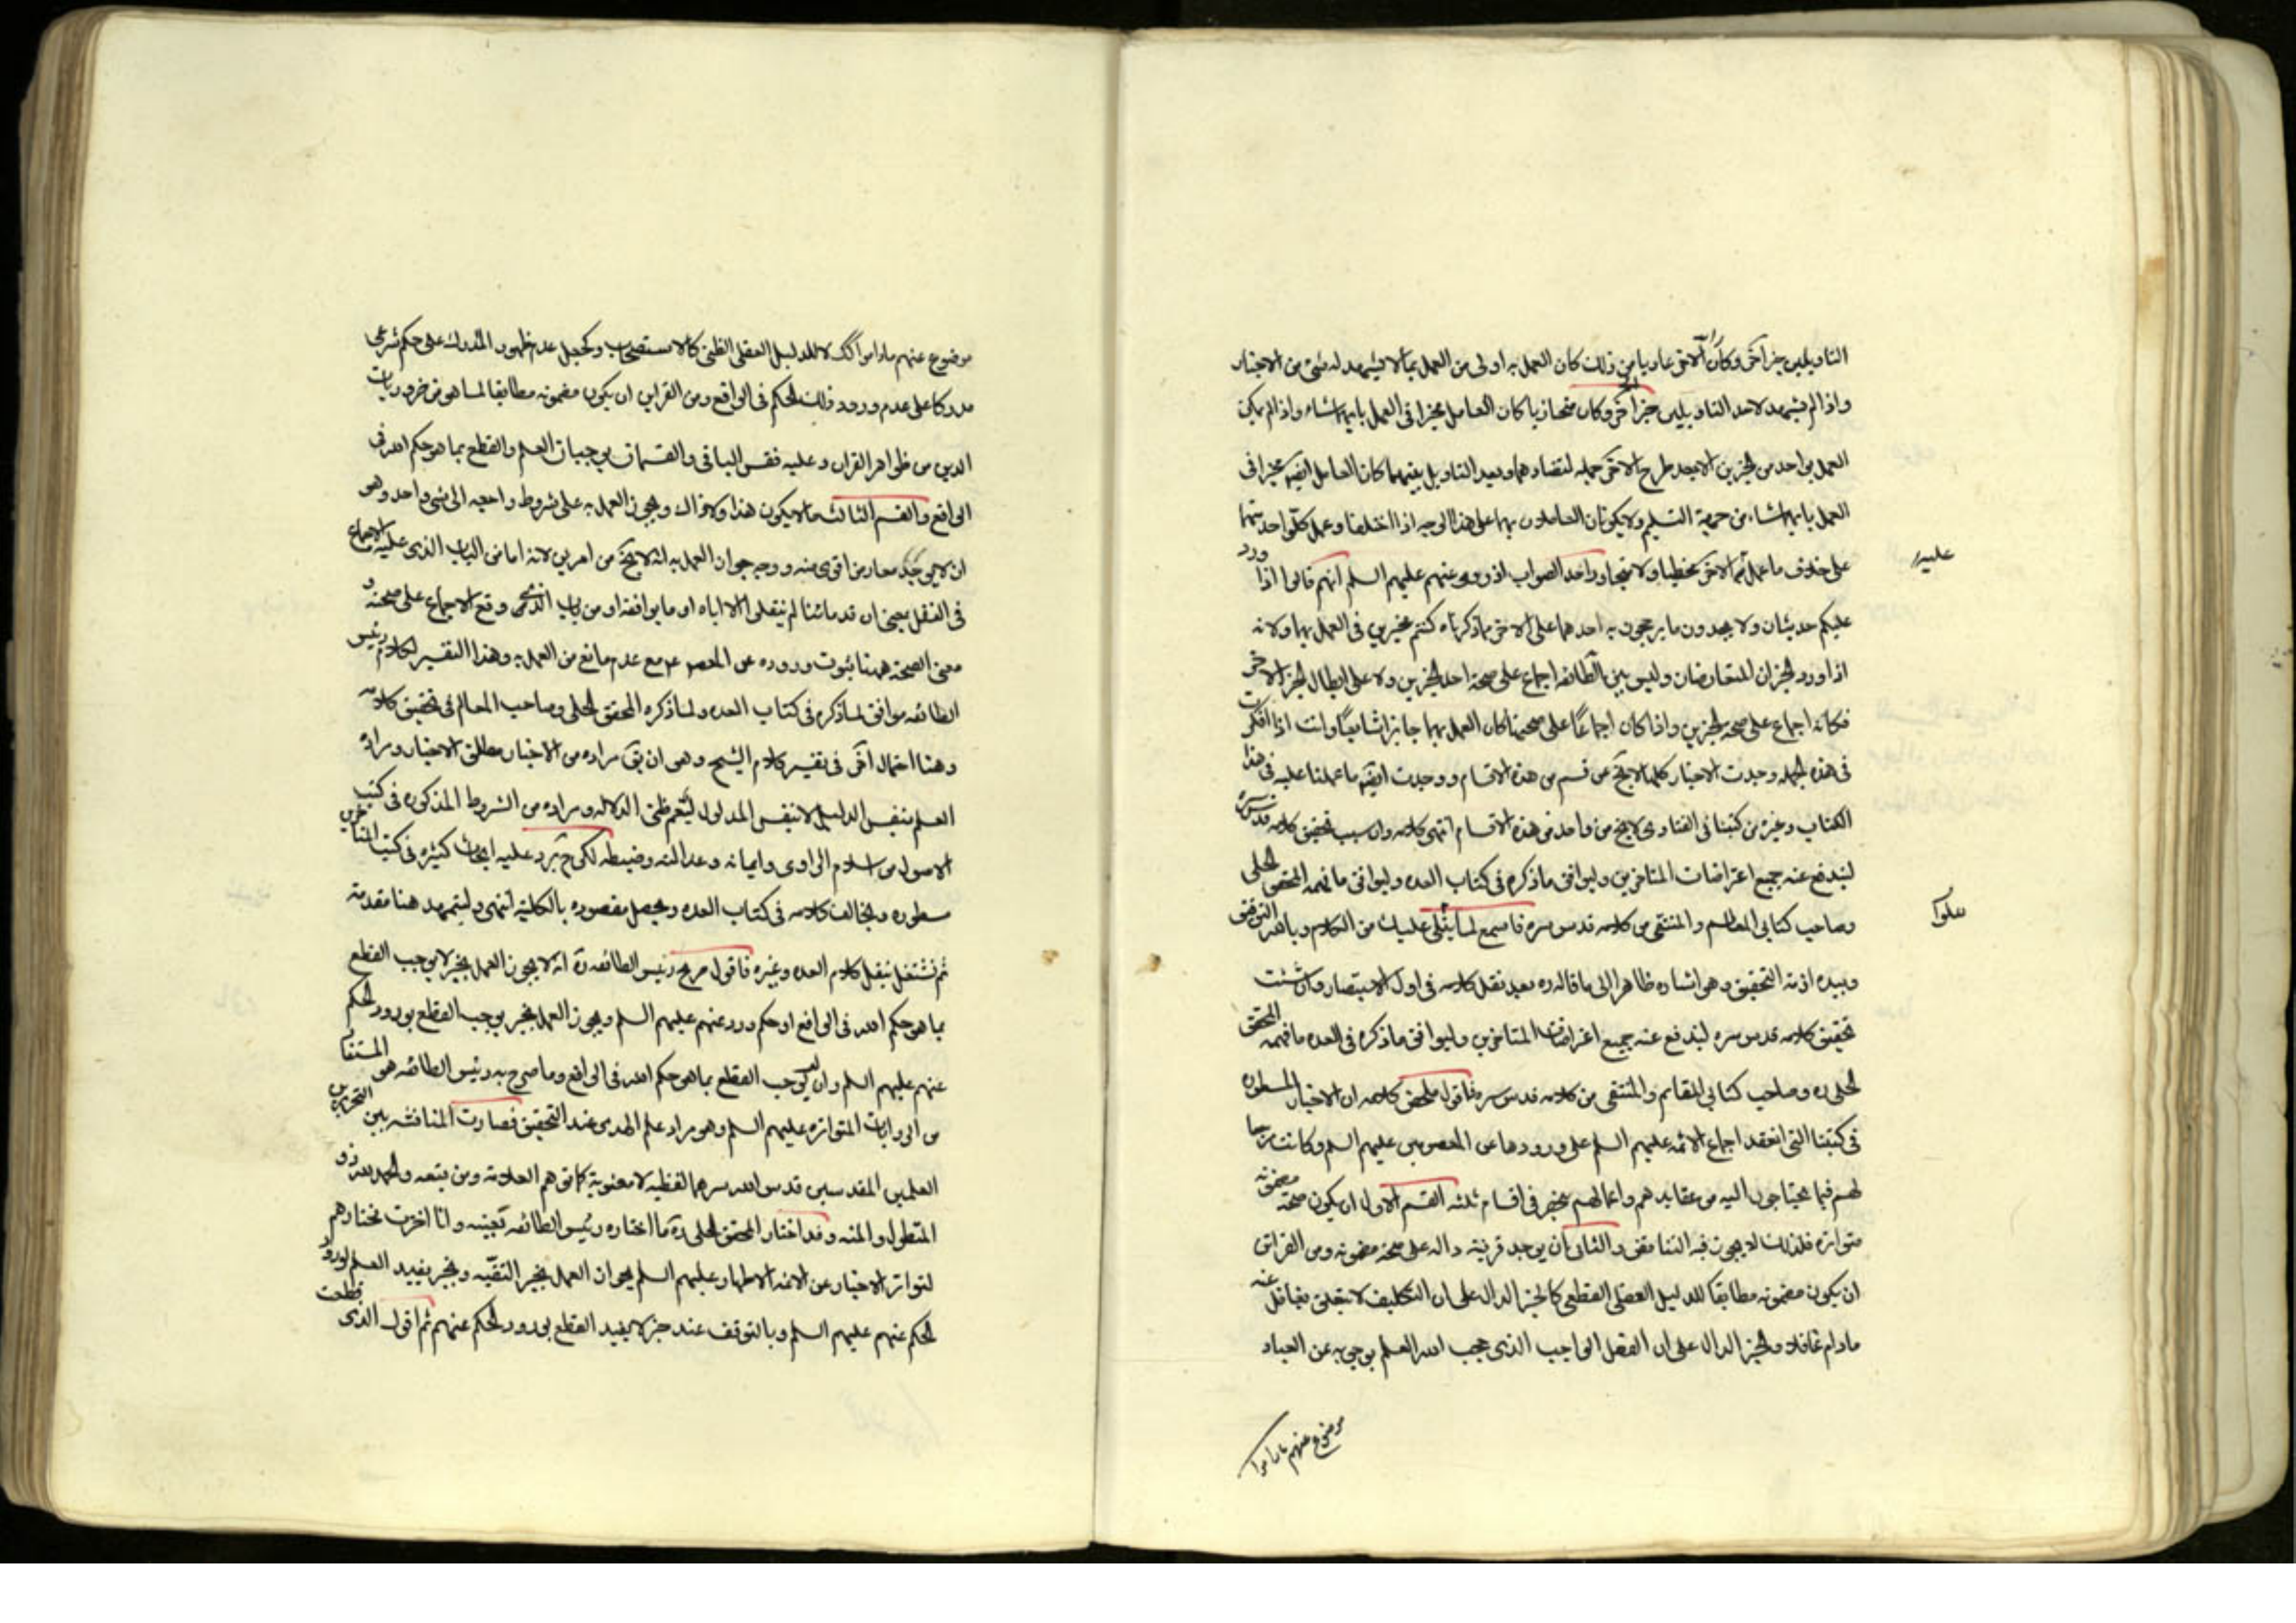 التاويلين خبر آخر وكان الآخر عاريا من ذلك كان العمل به اولى من العمل بما لا يشهد له شئ من الاخبار
واذا لم يشهد لاحد التاويلين خبر آخر وكان متحاذيا كان العامل مخيرا في العمل بايهما شاء واذا لم يكن
العمل بواحد من الخبرين الا بعد طرح الآخر جملة لتضادهما وبعد التاويل بينهما كان العامل ايضا مخيرا في
العمل بايهما شاء من جهة التسليم ولا يكونان العاملون بهما على هذا الوجه اذا اختلفا وعمل كل واحد منهما
على خلاف ما عمل عليه الآخر مخطيا ولا متجاوزا حد الصواب اذ روى عنهم عليهم السلم انهم قالوا اذا ورد
عليكم حديثان ولا تجدون ما ترجحون به احدهما على الآخر مما ذكرناه كنتم مخيرين في العمل بهما ولانه
اذا ورد الخبران المتعارضان وليس بين الطائفة اجماع على صحة احد الخبرين ولا على ابطال الخبر الآخر
فكانه اجماع على صحة الخبرين واذا كان اجماعا على صحتهما كان العمل بهما جايزا شايعا وانت اذا افكرت
في هذه الجملة وجدت الاخبار كلها لا تخ عن قسم من هذه الاقسام ووجدت ايضا ما عملنا عليه في هذا
الكتاب وغيره من كتبنا في الفتاوى لا يخ من واحد من هذه الاقسام انتهى كلامه وان سبب تحقيق كلامه قدس سره
ليندفع عنه جميع اعتراضات المتاخرين وليوافق ما ذكره في كتاب العده وليوافق ما فهمه المحقق الحلى
وصاحب كتابى المعالم والمنتقى من كلامه قدس سره فاسمع لما يتلى عليك من الكلام وبالله التوفيق
وبيده ازمة التحقيق وهو اشاره ظاهرا الى ما قاله ره بعد نقل كلامه في اول الاستبصار وان شئت
تحقيق كلامه قدس سره ليندفع عنه جميع اعتراضات المتاخرين وليوافق ما ذكره في العده ما فهمه المحقق
الحلى ره وصاحب كتابى المعالم والمنتقى من كلامه قدس سره فاقول ملخص كلامه ان الاخبار المسطوره
في كتبنا التى انعقد اجماع الائمه عليهم السلم على ورودها عن المعصومين عليهم السلم وكانت مرجعا
لهم فيما يحتاجون اليه من عقايدهم واعمالهم ينحصر في اقسام ثلثه القسم الاول ان يكون صحة مضمونه
متواتره فلذلك لا يجوز فيه التناقض والثانى ان يوجد قرينة داله على صحة مضمونه ومن القراين
ان يكون مضمونه مطابقا للدليل العقلى القطعى كالخبر الدال على ان التكليف لا يتعلق بغافل عنه
مادام غافلا والخبر الدال على ان الفعل الواجب الذى حجب الله العلم بوجوبه عن العباد
موضوع عنهم ماداموا
عليه
يتلوا
موضوع عنهم ماداموا كك لا للدليل العقلى الظنى كالاستصحاب وكجعل عدم ظهور المدرك على حكم شرعى
مدركا على عدم ورود ذلك الحكم في الواقع ومن القراين ان يكون مضمونه مطابقا لما هو من ضروريات
الدين من ظواهر القران وعليه فقس الباقى والقسمان يوجبان العلم والقطع بما هو حكم الله في
الواقع والقسم الثالث ما لا يكون هذا ولا ذاك ويجوز العمل به على شروط راجعه الى شئ واحد وهو
ان لا يوجد معارض اقوى منه ووجه جواز العمل به انه لا يخ من امرين لانه اما من الباب الذى عليه الاجماع
في النقل بمعنى ان قدمائنا لم ينقلوا الا اياه او ما يوافقه او من باب الذى وقع الاجماع على صحته و
معنى الصحة ههنا ثبوت وروده عن المعصوم ع مع عدم مانع من العمل به وهذا التفسير لكلام رئيس
الطائفه موافق لما ذكره في كتاب العده ولما ذكره المحقق الحلى وصاحب المعالم في تحقيق كلامه
وهنا احتمال آخر في تفسير كلام الشيخ وهو ان يق مراده من الاخبار مطلق الاخبار ومراده
العلم بنفس الدليل لا بنفس المدلول ليعم ظنى الدلاله ومراده من الشروط المذكوره في كتب
الاصول من اسلام الراوى وايمانه وعدالته وضبطه لكن ح يرد عليه ابحاث كثيره في كتب المتاخرين
مسطوره ويخالف كلامه في كتاب العده ويحصل مقصوده بالكلية انتهى ولنمهد هنا مقدمة
ثم نشتغل بنقل كلام العده وغيره فاقول صرح رئيس الطائفه ره انه لا يجوز العمل بخبر لا يوجب القطع
بما هو حكم الله في الواقع او حكم ورد عنهم عليهم السلم ويجوز العمل بخبر يوجب القطع بورود الحكم
عنهم عليهم السلم وان لم يوجب القطع بما هو حكم الله في الواقع وما صرح به رئيس الطائفه هو المستفاد
من الروايات المتواتره عليهم السلم وهو مراد علم الهدى عند التحقيق فصارت المناقشه بين النحريرين
العلمين المقدسين قدس الله سرهما لفظيه لا معنوية كما توهم العلامة ومن تبعه والحمد لله ذو
التطول والمنه وقد اختار المحقق الحلى ره ما اختاره رئيس الطائفه بعينه وانا اخترت مختارهم
لتواتر الاخبار عن الائمه الاطهار عليهم السلم بجواز العمل بخبر الثقة وبخبر يفيد العلم بورود
الحكم عنهم عليهم السلم وبالتوقف عند خبر لا يفيد القطع بورود الحكم عنهم ثم اقول الذى قطعت